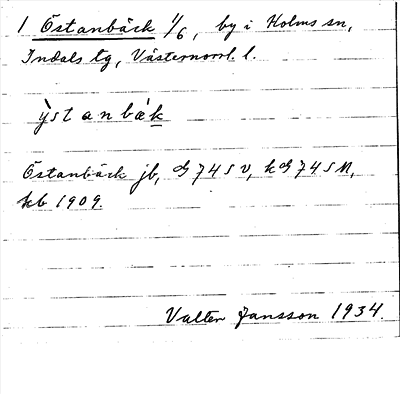 1 Östanbäck 1/6, by i Holms sn,
Indals tg, Västernorrl. l.
ỳstanbák
Östanbäck jb, GJ 74 S V, kGJ 74 S M,
kb 1909.
Valter Jansson 1934.